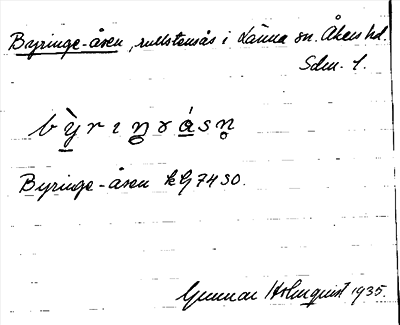 Byringe-åsen, rullstensås i Länna sn. Åkers hd.
Sdm. 1.
Byringe-åsen kG 74 SO.
Gunnar Holmquist 1935.